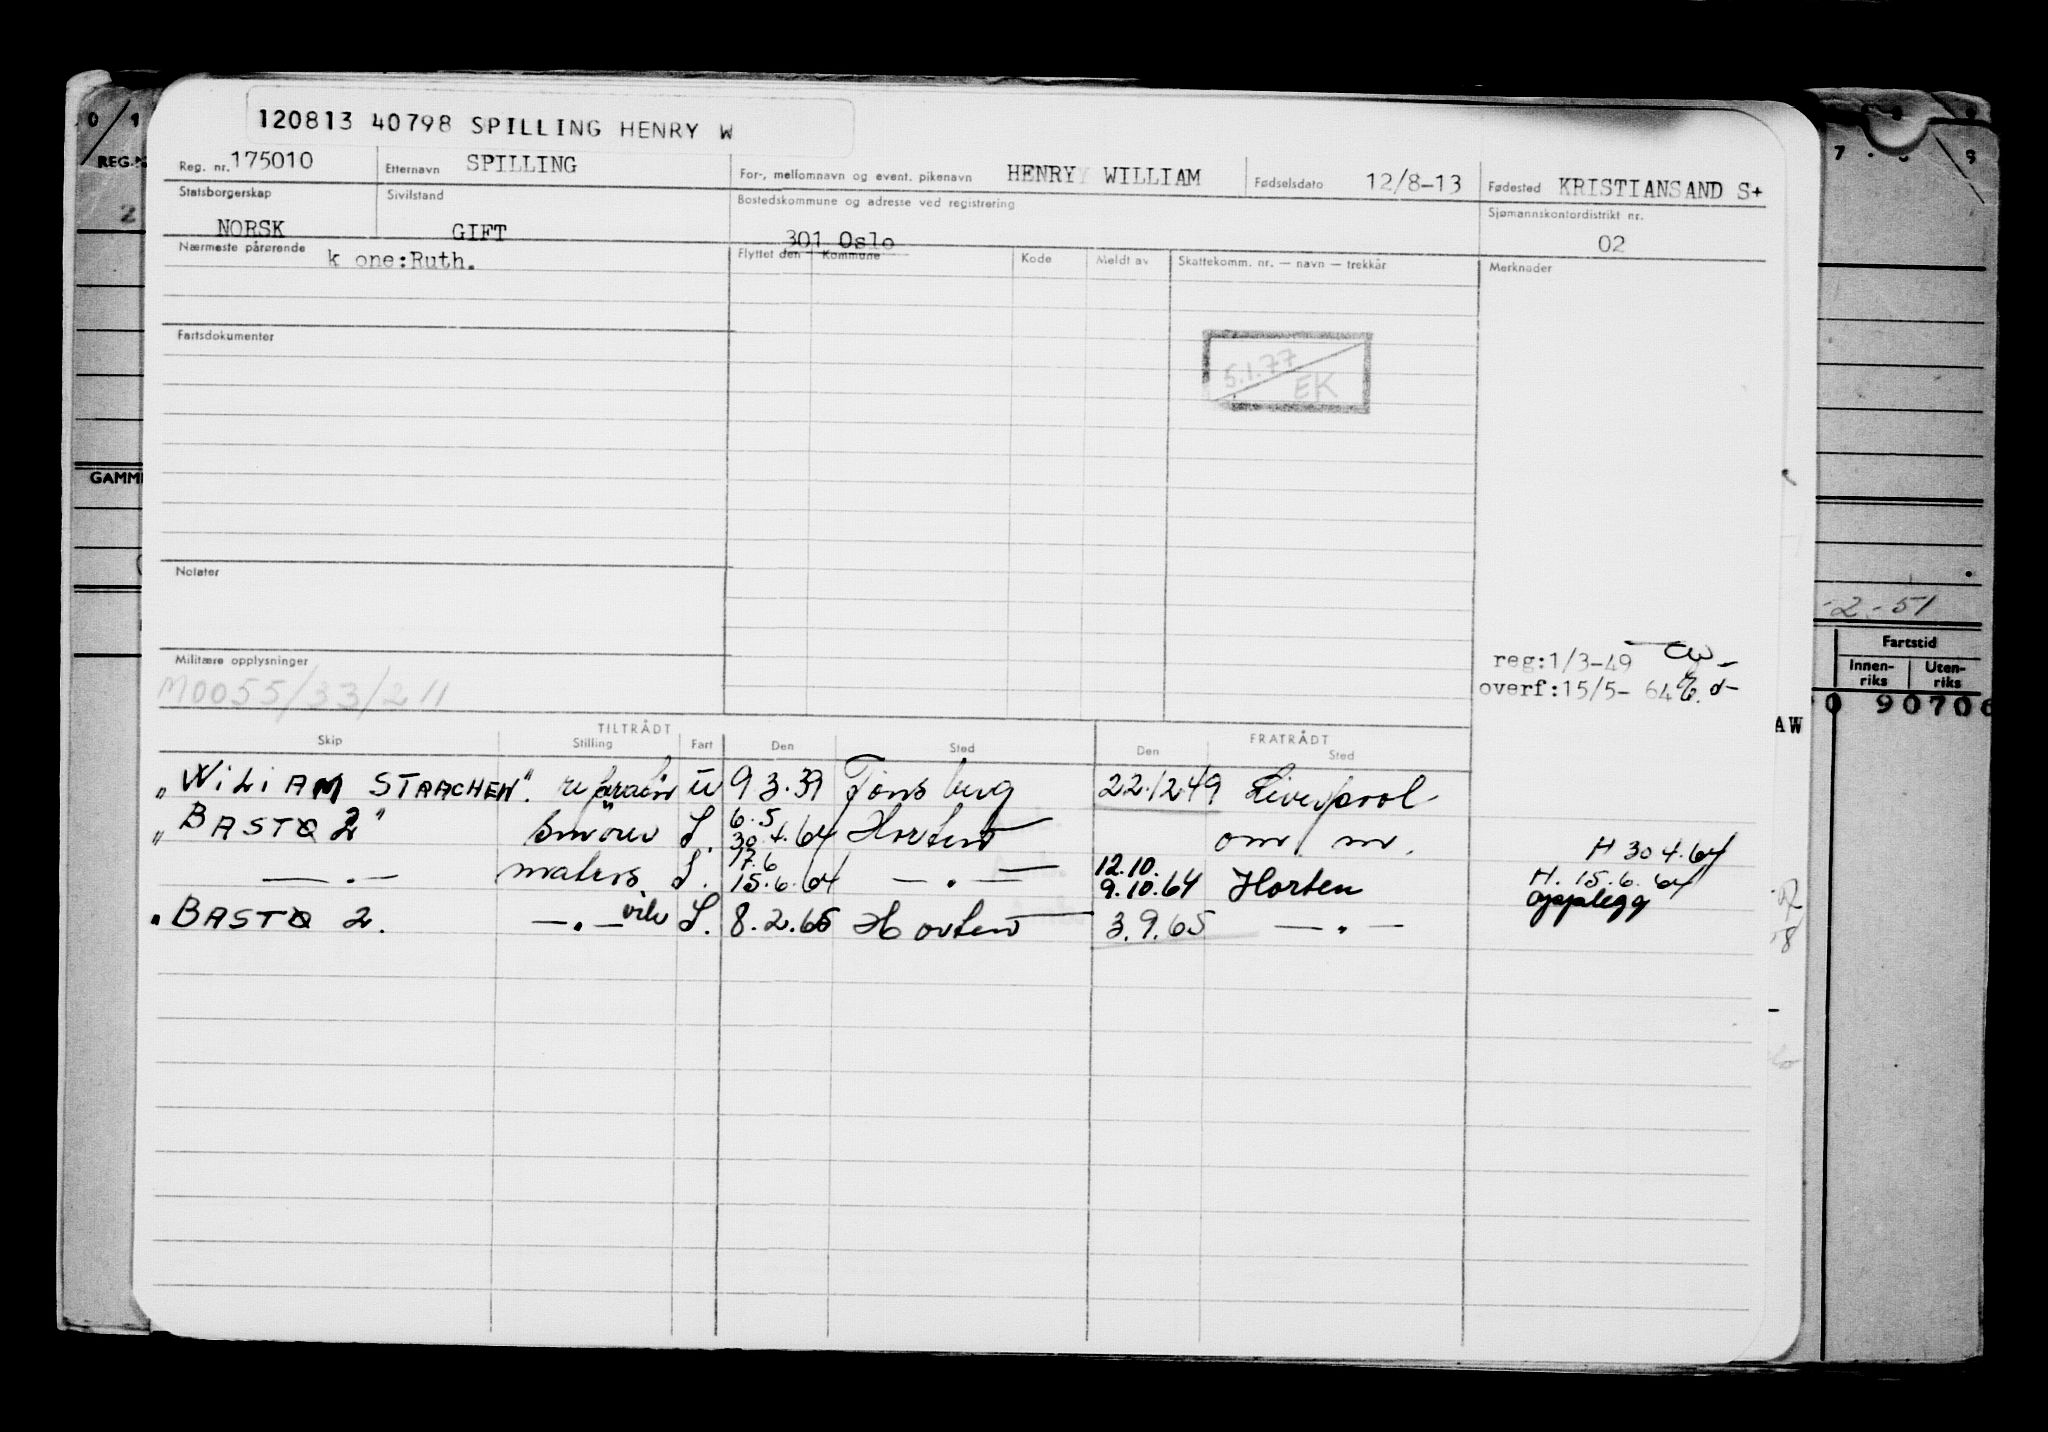 120813 40798 SPILLING HENRY W
Reg. nr. 175010 Etternavn SPILLING For-, mellomnavn og event. pikenavn HENRY WILLIAM Fødselsdato 12/8-13 Fødested KRISTIANSAND S+
Statsborgerskap Sivilstand Bostedskommune og adresse ved registrering Sjømannskontordistrikt nr.
NORSK GIFT 301 Oslo 02
Nærmeste pårørende k one:Ruth. Flyttet den Kommune Kode Meldt av Skattekomm. nr. — navn — trekkår Merknader
Fartsdokumenter
5.1.77
EK
Notater
Militære opplysninger
M0055/33/211
reg:1/3-49
overf:15/5- 64
TILTRÅDT FRATRÅDT
Skip Stilling Fart Den Sted Den Sted
"WILIAM STRACHEN". u 9 3.39 Tønsberg 22.12.49 Liverpool
"BASTØ 2" smører I. 6.5 30.4.64 Horten om m. H 30 4.64
— . — matros I. 17.6 15.6.64 — . — 12.10. 9.10.64 Horten H. 15.6.64 opplegg
" BASTØ 2. — . — vik I. 8.2.65 Horten 3.9.65 — . —
REG.N
GAMM
-2-51
Fartstid
Innen-riks Uten-riks
0 90706
AW